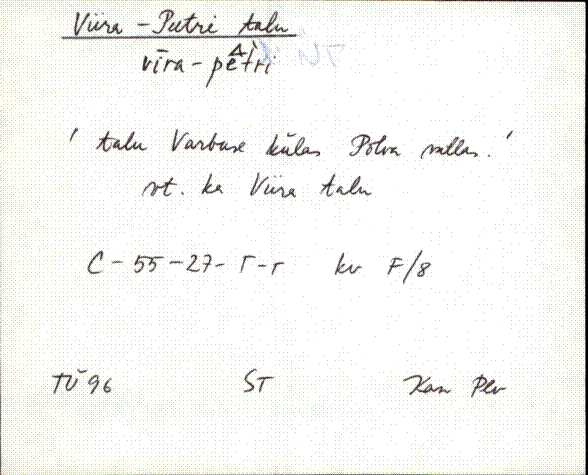 Viira-Peetri talu
vīra-pētri
' talu Varbuse külas Põlva vallas.'
vt. ka Viira talu
C-55-27-Г-г kv F/8
TÜ 96 ST Kan Plv